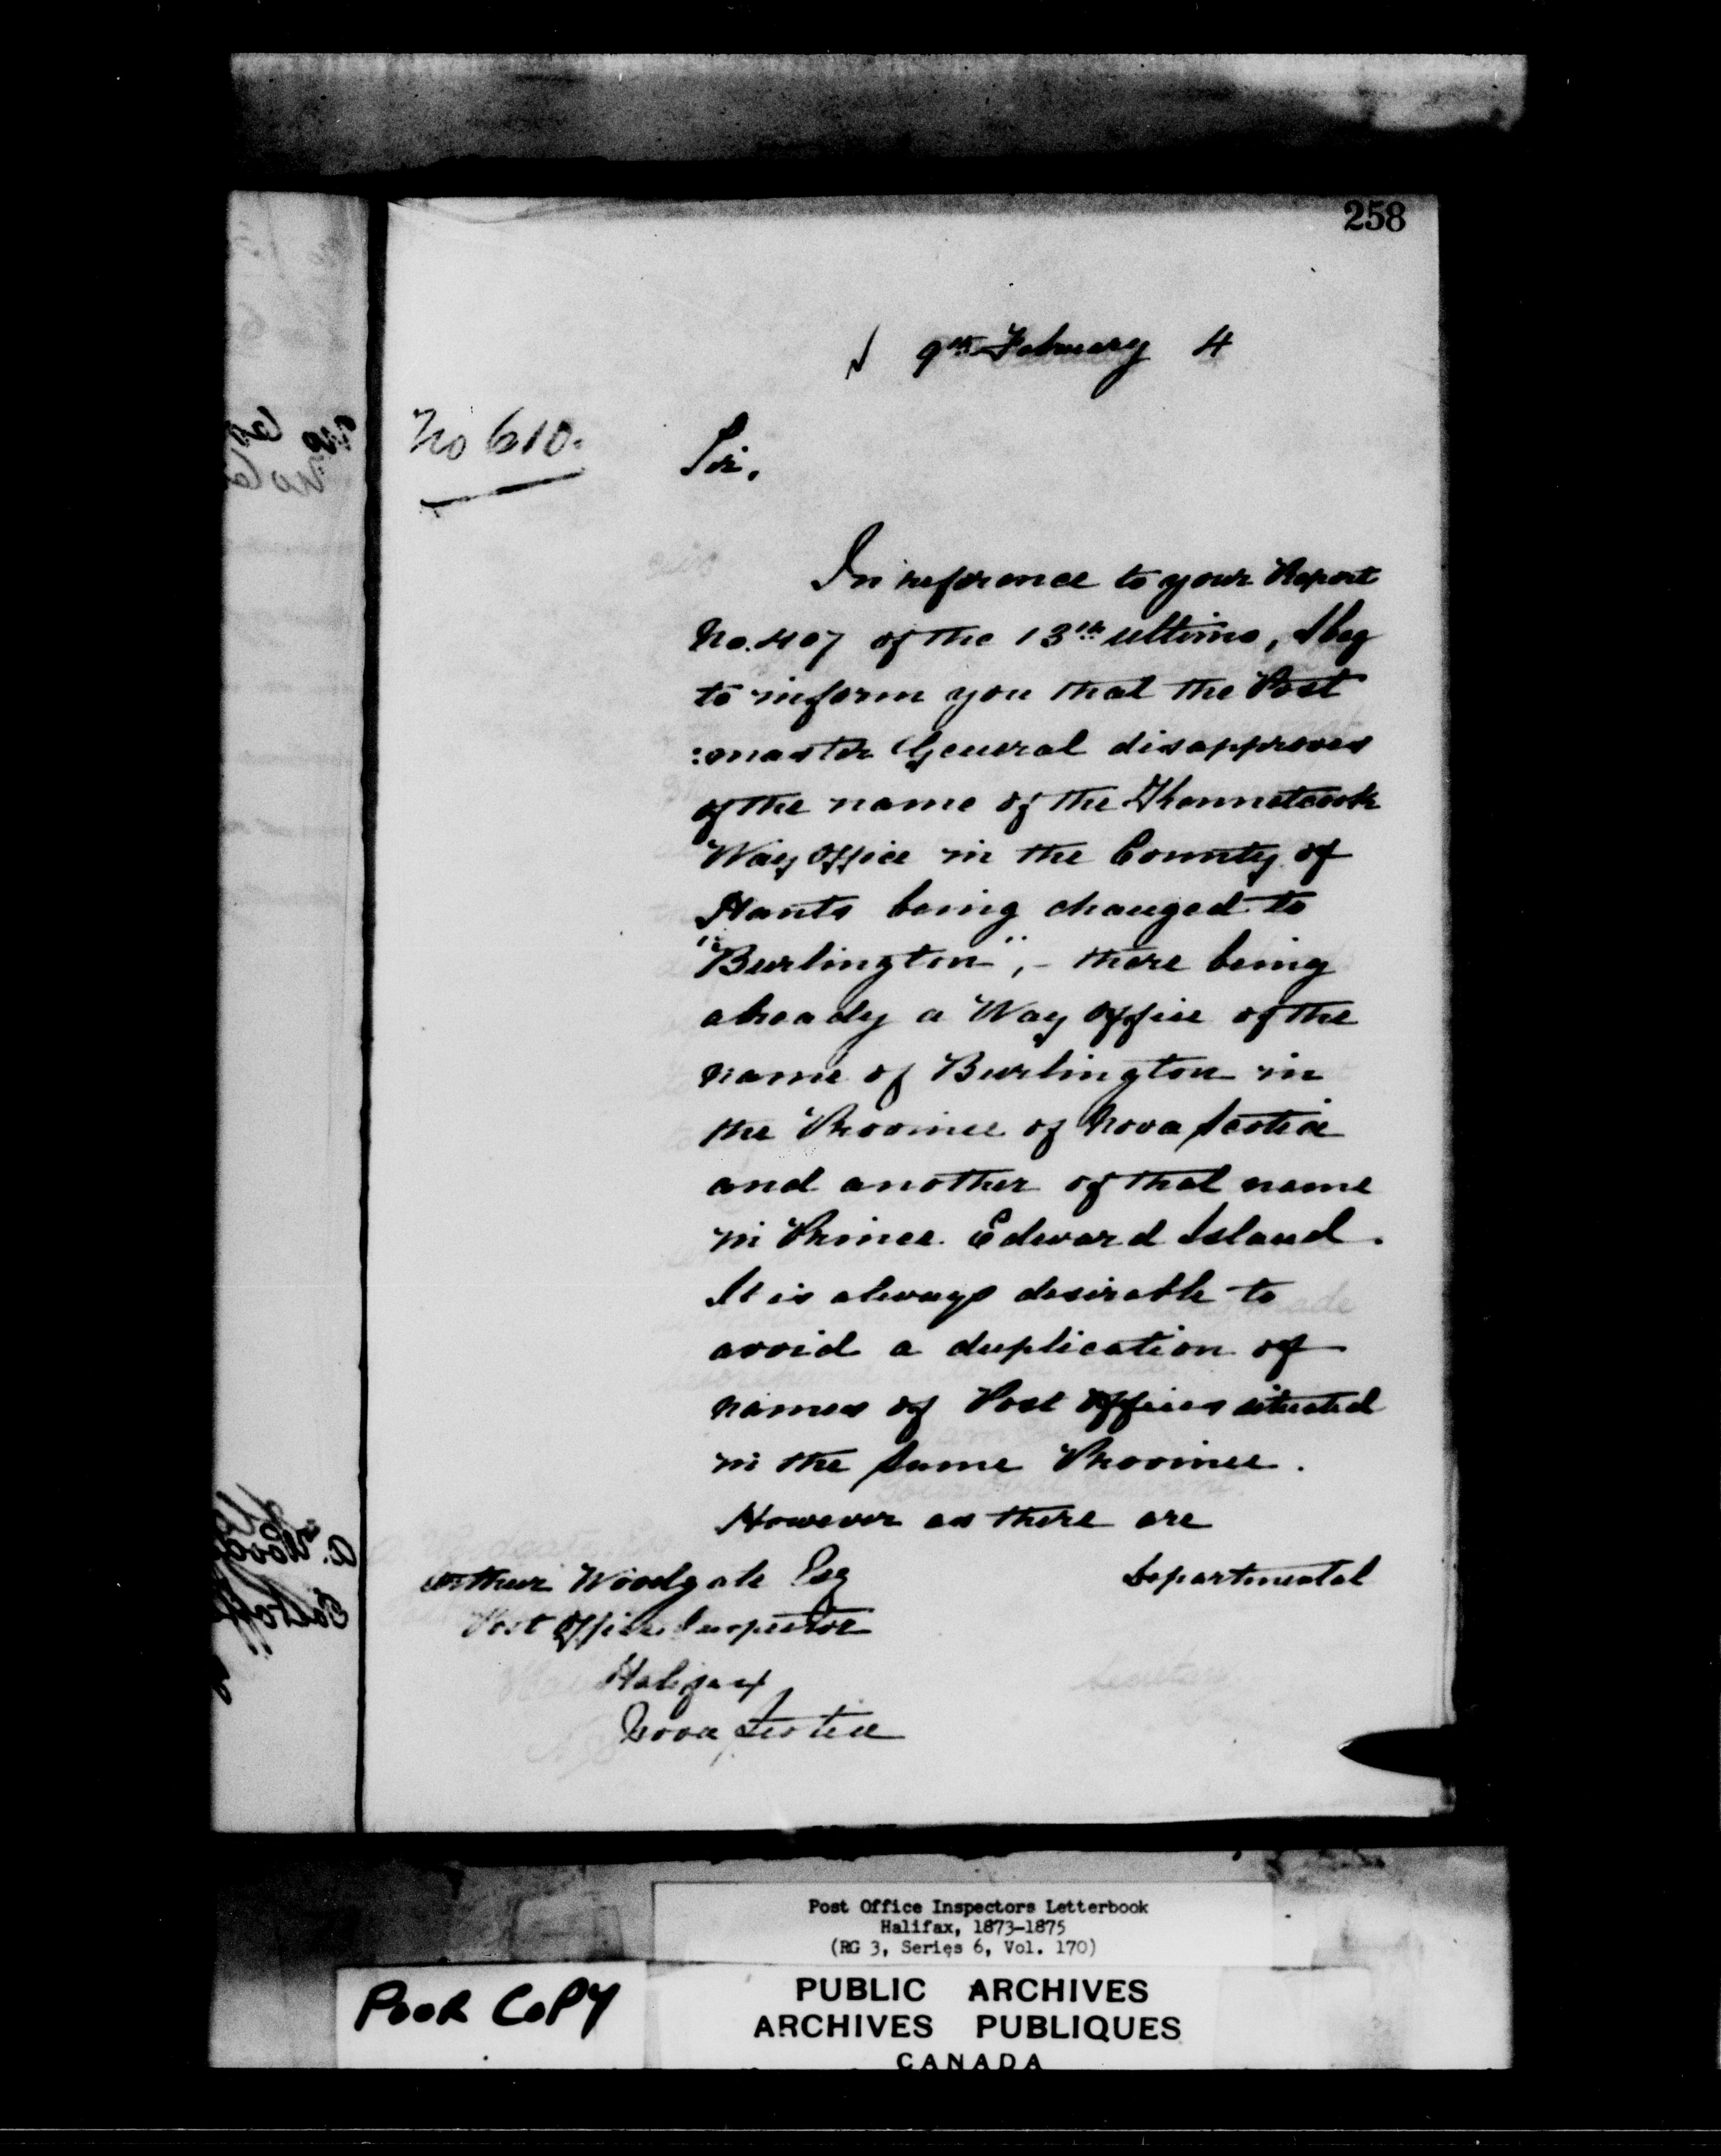 258
9th February 4
No 610.
Sir,
In reference to your Report
No. 407 of the 13th ultimo, I beg
to inform you that the Post
:master General disapproves
of the name of the
Way Office in the County of
Hants being changed to
"Burlington", - there being
already a Way Office of the
name of Burlington in
the Province of Nova Scotia
and another of that name
in Prince Edward Island.
It is always desirable to
avoid a duplication of
names of Post Offices situated
in the same Province.
However as there are
Departmental
Arthur Woodgate Esq
Post Office Inspector
Halifax
Nova Scotia
Post Office Inspectors Letterbook
Halifax, 1873-1875
(RG 3, Series 6, Vol. 170)
POOR COPY
PUBLIC ARCHIVES
ARCHIVES PUBLIQUES
CANADA